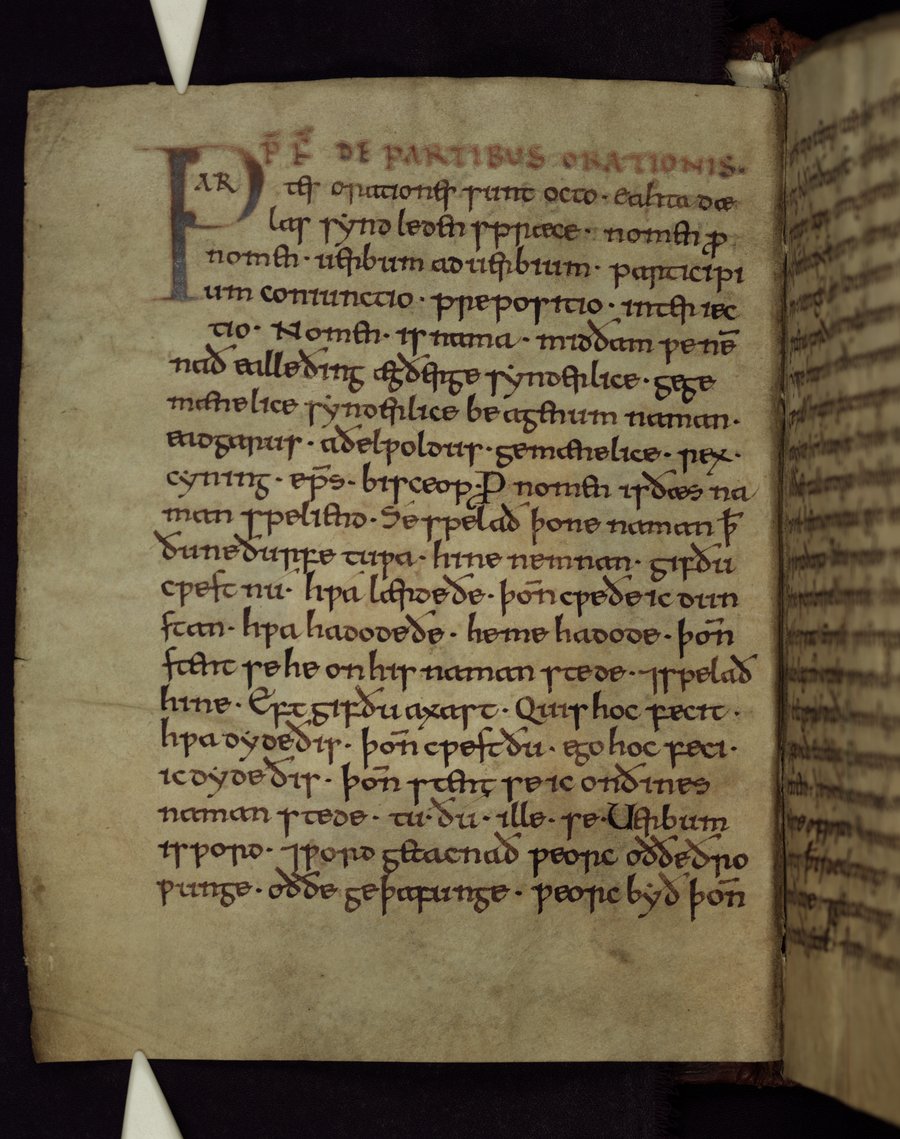 P̄F̄ DE PARTIBUS ORATIONIS.
PARtes orationis sunt octo · eahta dæ
las synd ledenspræce · nomen ꝓ
nomen · uerbum aduerbium · participi
um coniunctio · prepositio · interiec
tio · Nomen · is nama · mid ðam ƿe nē
nað ealle ðing ægðer ge synderlice · ge ge
mænelice synderlice be agenum naman ·
eadgarus · aðelƿoldus · gemænelice · rex ·
cyning · ep̄s · bisceop · Ꝓnomen is ðæs na
man speliend · Se spelað þone naman ꝥ
ðu ne ðurfe tuƿa · hine nemnan · gif ðu
cƿest nu · hƿa lærde ðe · þoñ cƿeðe ic dun
stan · hƿa hadode ðe · he me hadode · þoñ
stent se he on his naman stede · ⁊ spelað
hine · Eft gif ðu axast · Quis hoc fecit ·
hƿa dyde ðis · þoñ cƿest ðu · ego hoc feci ·
ic dyde ðis · þoñ stent se ic on ðines
naman stede · tu · ðu · ille · se · Uerbum
is ƿord · ⁊ ƿord getacnað ƿeorc oððe ðro
ƿunge · oððe geþafunge · ƿeorc byð þoñ